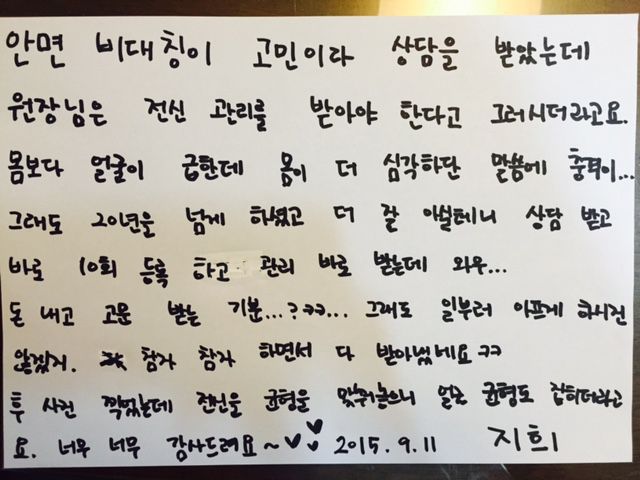 안면 비대칭이 고민이라 상담을 받았는데
원장님은 전신 관리를 받아야 한다고 그러시더라고요.
몸보다 얼굴이 급한데 몸이 더 심각하단 말씀에 충격이...
그래도 20년을 넘게 하셨고 더 잘 아실테니 상담 받고
바로 10회 등록 하고 관리 바로 받는데 와우...
돈 내고 고문 받는 기분...?ㅋㅋ... 그래도 일부러 아프게 하시진
않겠지. 참자 참자 하면서 다 받아냈네요ㅋㅋ
후 사진 찍었는데 전신을 균형을 맞춰놓으니 얼굴 균형도 잡히더라고
요. 너무 너무 감사드려요~♥♥ 2015.9.11 지희